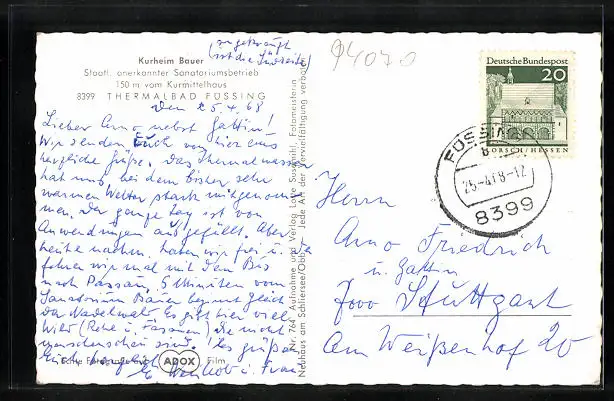 angekreuzt
(ist die Südseite)
94070
Kurheim Bauer
Staatl. anerkannter Sanatoriumsbetrieb
150 m vom Kurmittelhaus
8399 THERMALBAD FÜSSING
den 25.4.68
Lieber Arno nebst Gattin!
Wir senden Euch von hier aus
herzliche Grüße. Das Thermalwasser
hat uns bei dem bisher sehr
warmen Wetter stark mitgenom-
men. Der ganze Tag ist von
Anwendungen ausgefüllt. Aber
heute nachm. haben wir frei u. da
fahren wir mal mit dem Bus
nach Passau. 5 Minuten vom
Sanatorium Bauer beginnt gleich
der Nadelwald. Es gibt hier viel
Wild (Rehe u. Fasanen) die nicht
menschenscheu sind. Es grüßen
Euch
u. Frau
Echte Fotografie auf ADOX Film
Nr. 764 Aufnahme und Verlag Lotte Fotomeisterin
Neuhaus am Schliersee/Obb. Jede Art der Vervielfältigung verboten
Deutsche Bundespost
20
LORSCH/HESSEN
FÜSSING
25.-4.68-12
8399
Herrn
Arno Friedrich
u. Gattin
7000 Stuttgart
Am Weißenhof 20